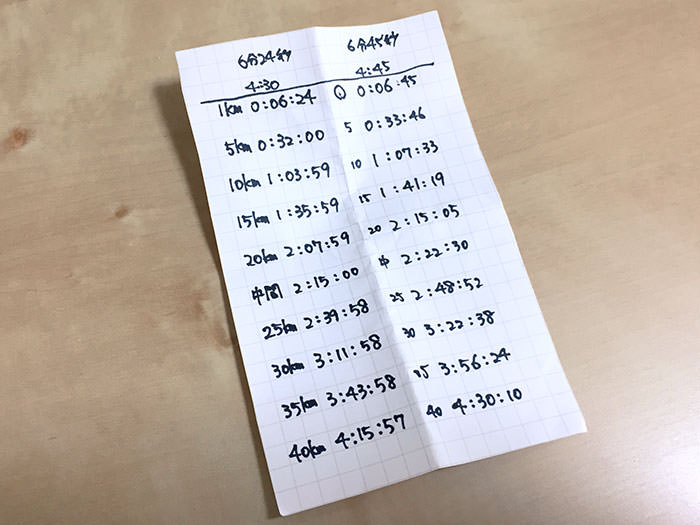 6分24秒 6分45秒
4:30 4:45
1km 0:06:24 ① 0:06:45
5km 0:32:00 5 0:33:46
10km 1:03:59 10 1:07:33
15km 1:35:59 15 1:41:19
20km 2:07:59 20 2:15:05
中間 2:15:00 中 2:22:30
25km 2:39:58 25 2:48:52
30km 3:11:58 30 3:22:38
35km 3:43:58 35 3:56:24
40km 4:15:57 40 4:30:10